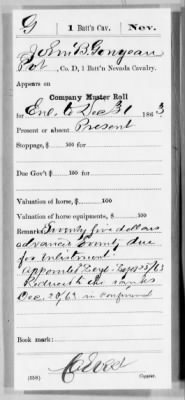 G | 1 Batt'n Cav. | Nev.
John B. Gonyeau
Pvt, Co. D, 1 Batt'n Nevada Cavalry.
Appears on
Company Muster Roll
for Enl. to Dec 31, 1863
Present or absent Present
Stoppage, $ 100 for
Due Gov't $ 100 for
Valuation of horse, $ 100
Valuation of horse equipments, $ 100
Remarks: Twenty five dollars
advance bounty due
for enlistment.
Appointed Sept 25/63
Reduced to the ranks
Dec. 20/63 in confinement
Book mark:
(858) Copyist.